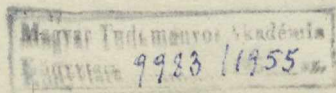 Magyar Tudományos Akadémia
Könyvtára 9923 /1955 sz.